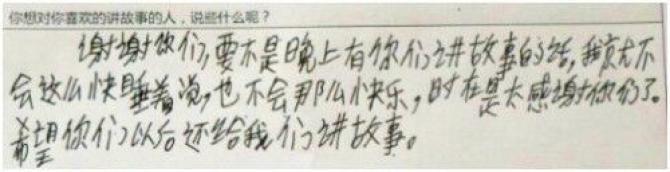 你想对你喜欢的讲故事的人，说些什么呢？
谢谢你们，要不是晚上有你们讲故事的话，我就不
会这么快睡着说，也不会那么快乐，时在是太感谢你们了。
希望你们以后还给我们讲故事。